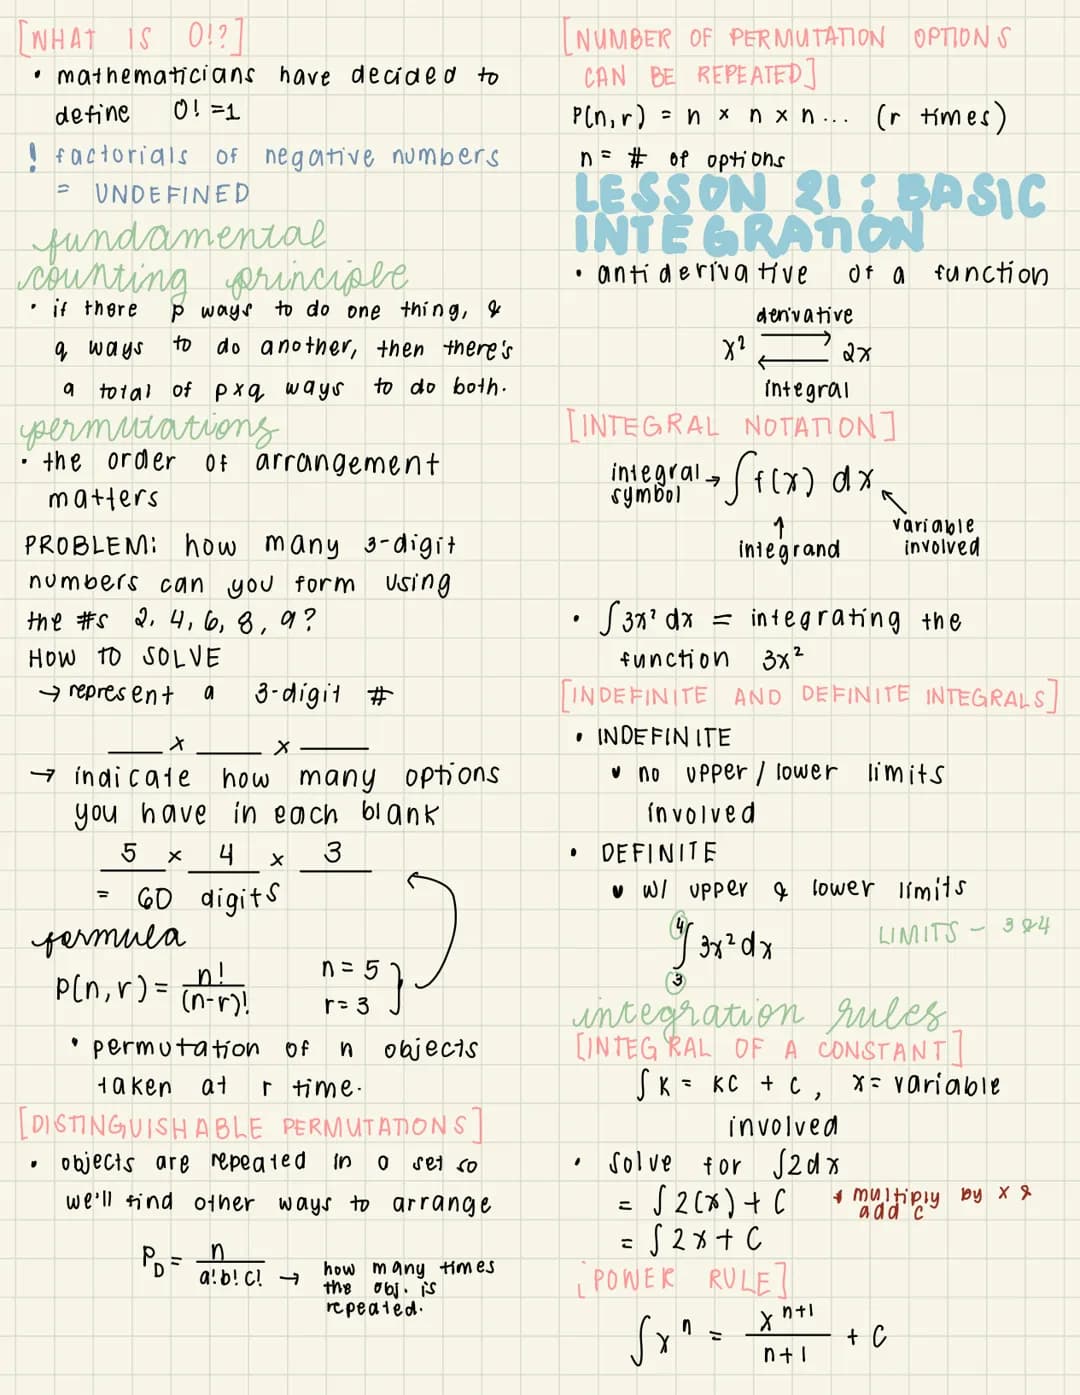 [WHAT IS 0!?]
• mathematicians have decided to
define 0! =1
! factorials of negative numbers
= UNDEFINED
fundamental
counting principle
• if there p ways to do one thing, &
q ways to do another, then there's
a total of pxq ways to do both.
permutations
• the order of arrangement
matters
PROBLEM: how many 3-digit
numbers can you form using
the #s 2, 4, 6, 8, 9?
HOW TO SOLVE
→ represent a 3-digit #
___ x ___ x ___
→ indicate how many options
you have in each blank
5 x 4 x 3
= 60 digits
formula
P(n,r) = n!/(n-r)! n = 5 r = 3 }
• permutation of n objects
taken at r time.
[DISTINGUISHABLE PERMUTATIONS]
• objects are repeated in a set so
we'll find other ways to arrange
P_D = n/(a!b!c!) → how many times
the obj. is
repeated.
[NUMBER OF PERMUTATION OPTIONS
CAN BE REPEATED]
P(n,r) = n x n x n... (r times)
n = # of options
LESSON 21: BASIC
INTEGRATION
• antiderivative of a function
derivative
x² ⇄ 2x
integral
[INTEGRAL NOTATION]
integral
symbol → ∫f(x) dx
↑
integrand
variable
involved
• ∫3x² dx = integrating the
function 3x²
[INDEFINITE AND DEFINITE INTEGRALS]
• INDEFINITE
no upper / lower limits
involved
• DEFINITE
w/ upper & lower limits
∫₃⁴ 3x² dx LIMITS - 3 & 4
integration rules
[INTEGRAL OF A CONSTANT]
∫K = KC + C, x = variable
involved
• Solve for ∫2dx
= ∫2(x) + C * multiply by x &
add c
= ∫2x + C
[POWER RULE]
∫xⁿ = xⁿ⁺¹/(n+1) + C